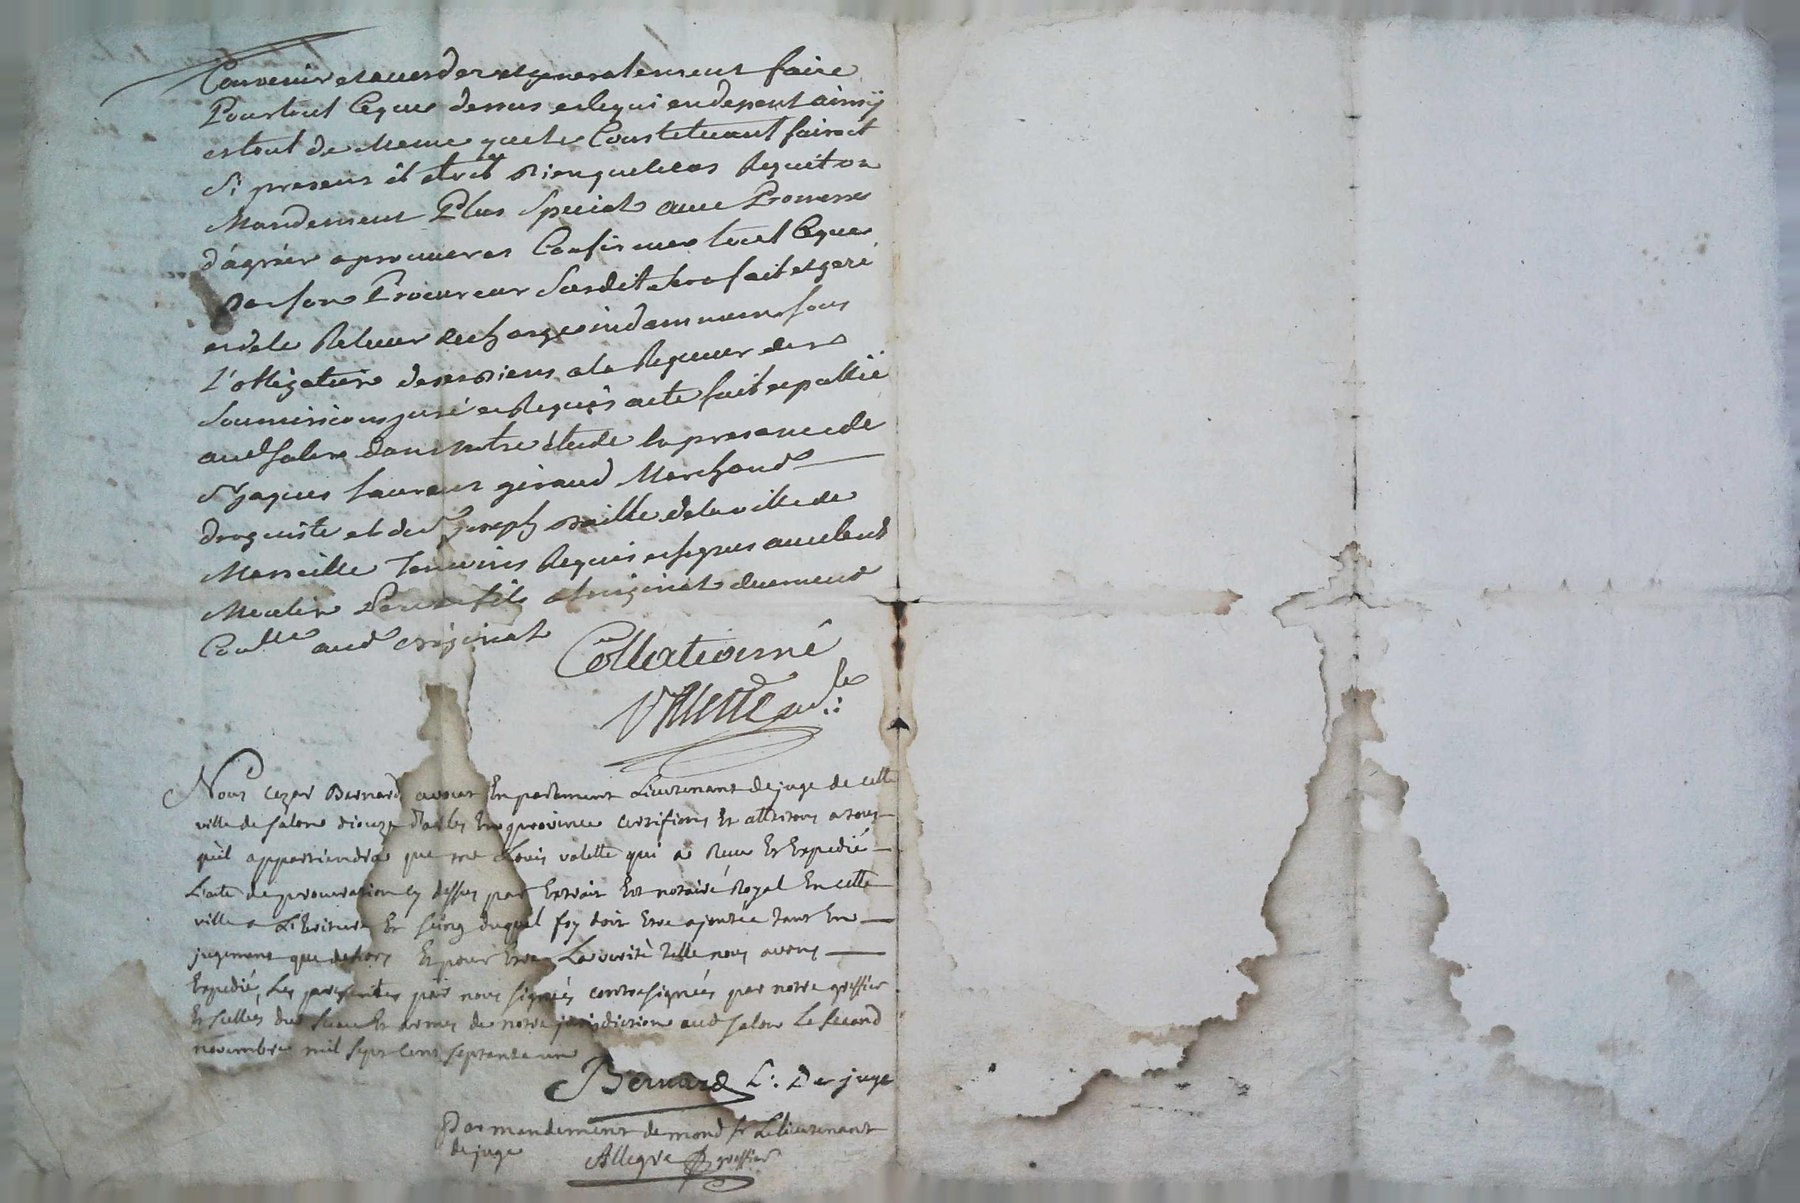 Convenir et accorder et generalement faire
Pour tout ceque dessus et cequi en depent ainsy
et tout de meme que le Constituant fairoit
si present il etoit Bien que le cas Requit un
Mandement Plus special avec Promesse
d'agréer aprouver et Confirmer tout Ceque
Par son Procureur Susdit sera fait et geré
et de le Relever decharge indamne sous
L'obligation de ses Biens a la Rigueur des
Soumissions juré et Requis acte fait et publié
aud Salon dans notre étude En presance de
Sr Jaques Laurens giraud Marchand
Droguiste et de Sr Joseph Baille de la ville de
Marseille Temoins Requis et signes avec led
Meulin a l'original duement
Conllé aud original
Collationné
Vallette
Nous Cezar Bernard avocat En parlement Lieutenant de juge de cette
ville de Salon dioceze d'arles En provence certifions Et attestons a tous
qu'il appartiendra que me Louis valette qui a Receu Et Expedié
L'acte de procuration cy dessus par Extrait Est notaire Royal En cette
ville a L'Ecriture Et seing duquel foy doit Etre ajoutée tant En
jugement que dehors Et pour Etre La verité Telle nous avons
Expedié Les presentes par nous signées contresignées par notre greffier
Et sellées du sceau Et armes de notre jurisdiction aud Salon Le second
novembre mil sept cent septante un
Bernard L: De juge
Par mandement de mond Sr Le lieutenant
de juge
Allegre greffier